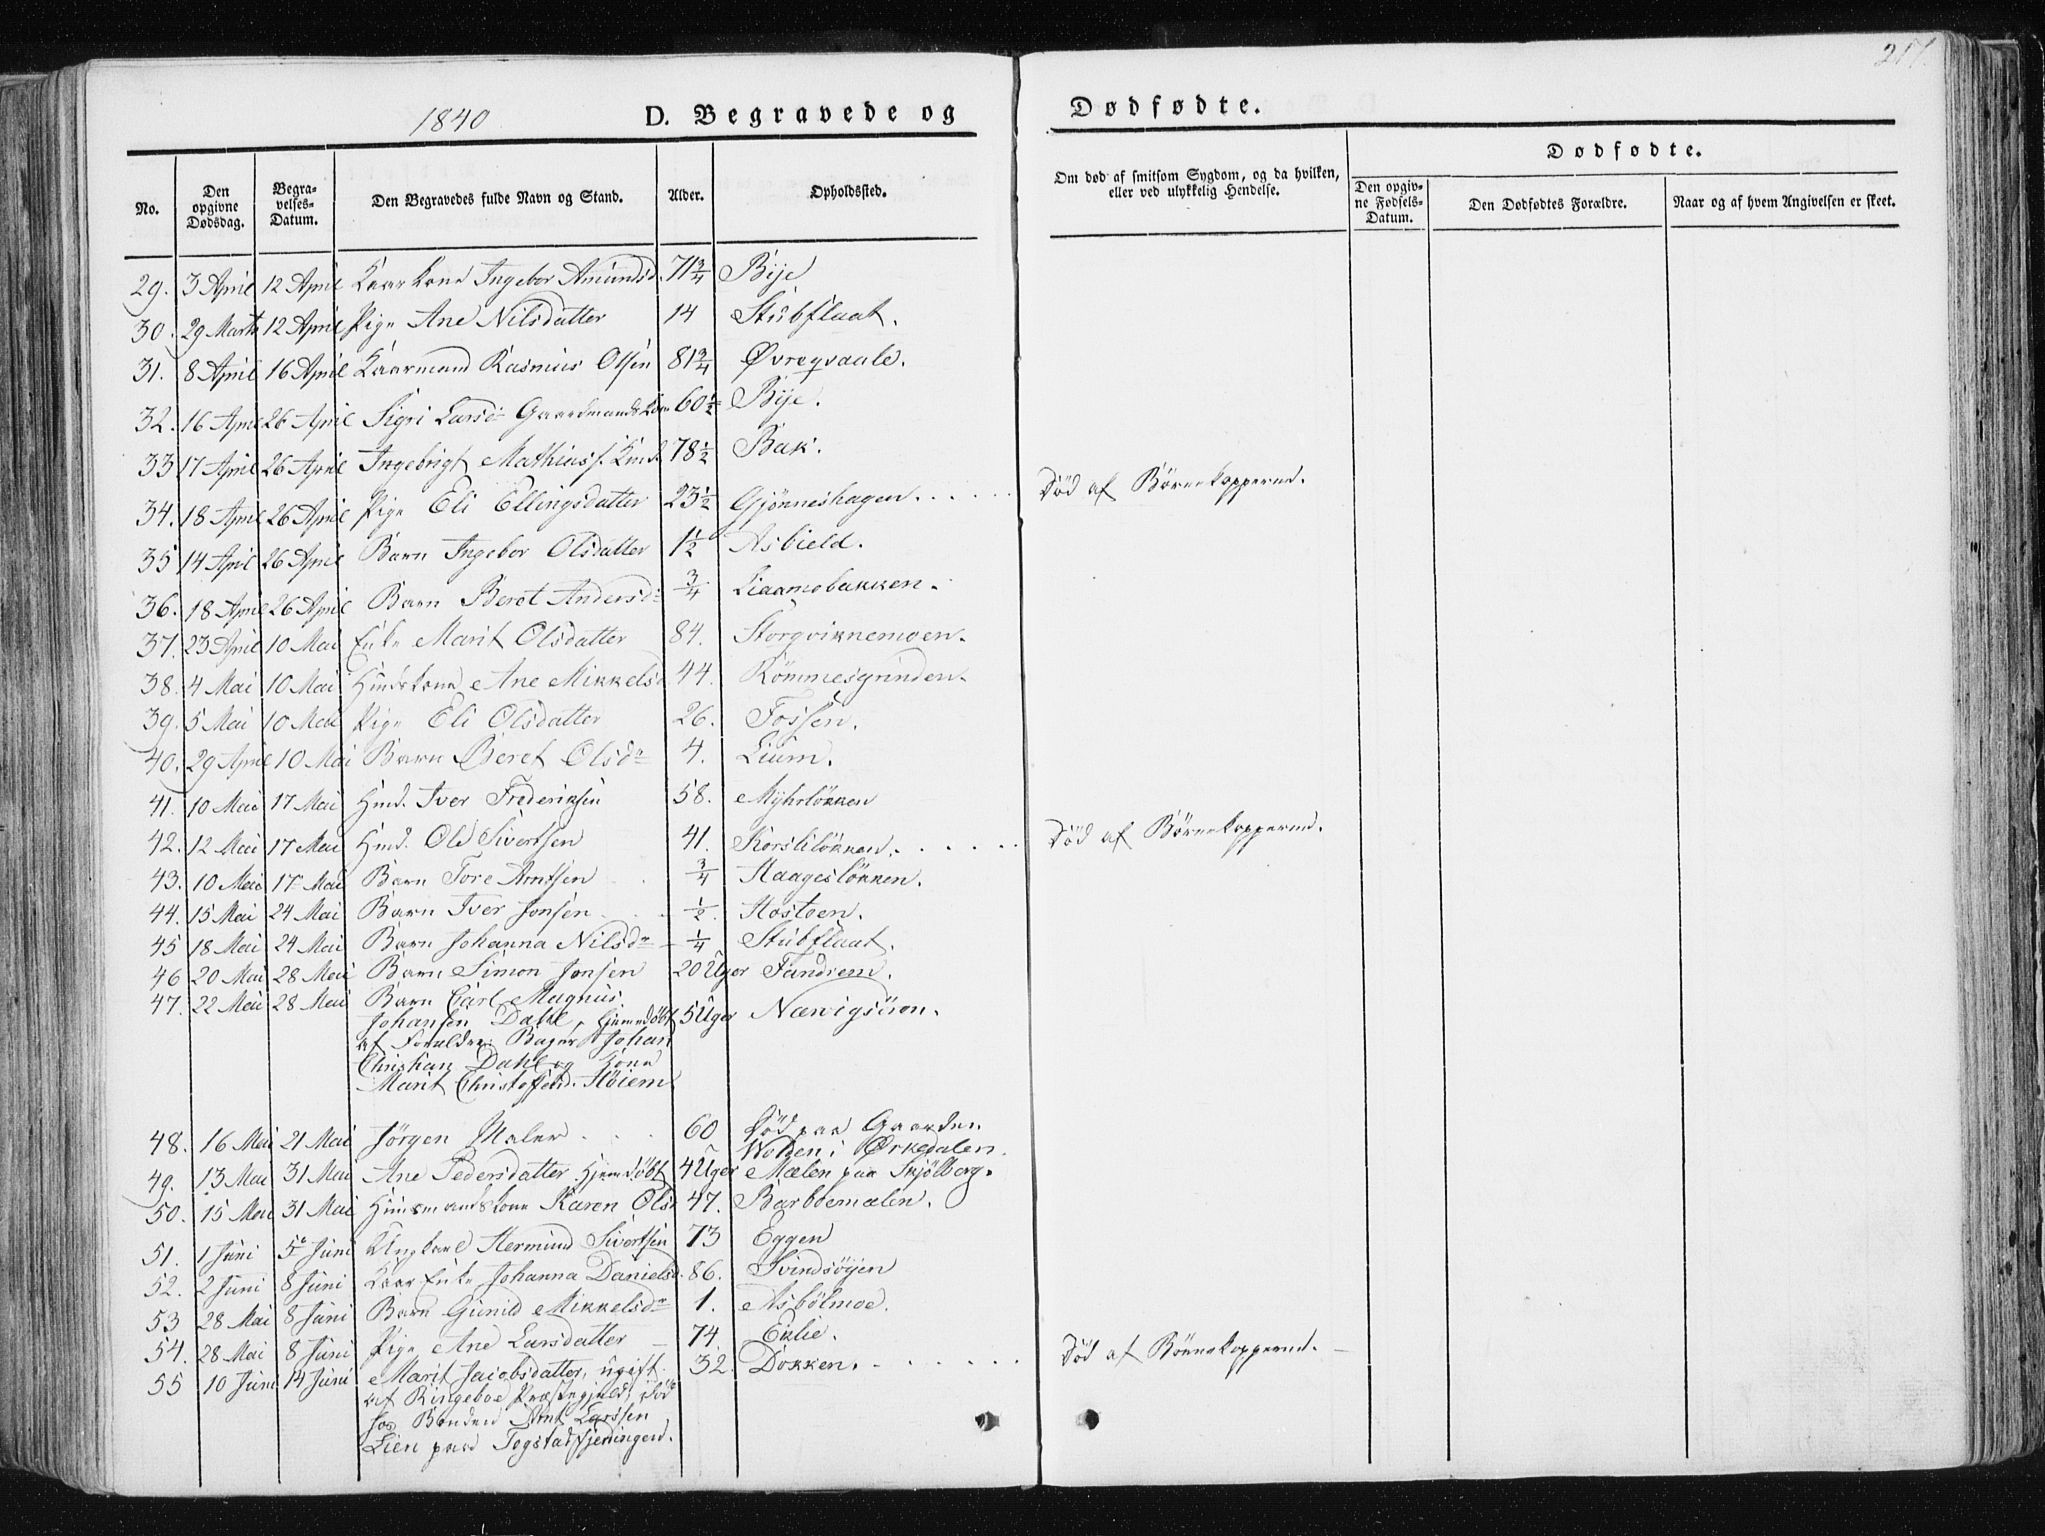 217.
1840 D. Begravede og Dødfødte.
No.
Den opgivne Dødsdag.
Begravelses-Datum.
Den Begravedes fulde Navn og Stand.
Alder.
Opholdssted.
Om død af smitsom Sygdom, og da hvilken, eller ved ulykkelig Hendelse.
Dødfødte.
Den opgivne Fødsels-Datum.
Den Dødfødtes Forældre.
Naar og af hvem Angivelsen er skeet.
29. 3 April 12 April Kaarkone Ingebor Amundsd. 71 3/4 Bije
30. 29 Marts 12 April Pige Ane Nilsdatter 14 Stubflaat.
31. 8 April 16 April Kaarmand Rasmus Olsen 81 3/4 Øvregvaale.
32. 16 April 26 April Sigri Larsd. Gaardmandskone 60 1/2 Bije.
33 17 April 26 April Ingebrigt Mathiass. 78 1/2 Bak.
34. 18 April 26 April Pige Eli Ellingsdatter 23 1/2 Gjönneshagen . . . . . Död af Börnekopperne.
35 14 April 26 April Barn Ingebor Olsdatter 1 1/2 Asbield.
36. 18 April 26 April Barn Beret Andersd. 3/4 Liaamobakken.
37. 23 April 10 Mai Enke Marit Olsdatter 84. Storgviknemoen.
38. 4 Mai 10 Mai Huuskone Ane Mikkelsd 44. Römmesgrinden.
39. 5 Mai 10 Mai Pige Eli Olsdatter 26. Fossen.
40. 29 April 10 Mai Barn Beret Olsdr 4. Lium.
41. 10 Mai 17 Mai Hmd. Iver Frederiksen 58. Myhrlökken
42. 12 Mai 17 Mai Hmd. Ole Sivertsen 41. Korslilökken. . . . . . . Död af Börnekopperne.
43. 10 Mai 17 Mai Barn Tore Arntsen 3/4 Haageslökken.
44. 15 Mai 24 Mai Barn Iver Jonsen 1/2. Hostoen.
45 18 Mai 24 Mai Barn Johanna Nilsdr 1/4 Stubflaat.
46 20 Mai 28 Mai Barn Simon Jonsen 20 Uger Fandrem.
47. 22 Mai 28 Mai Barn Carl Magnus
Johansen Dahl, hjemdöbt 5 Uger Nærvigsüren.
af Forældre: Bager Johan
Christian Dahl og Kone
Marit Christoffersd. Höiem
48. 16 Mai 21 Mai Jörgen Maler . . . 60 Död paa Gaarden
Wolden i Ørkedalen.
49. 13 Mai 31 Mai Ane Pedersdatter Hjemdöbt 4 Uger Mælen paa Skjölberg.
50. 15 Mai 31 Mai Huusmandskone Karen Olsd 47. Barboemælen.
51. 1 Juni 5 Juni Ungkarl Hermund Sivertsen 73 Eggen
52. 2 Juni 8 Juni Kaar Enke Johanna Danielsd. 86. Svindsöyen
53 28 Mai 8 Juni Barn Gunild Mikkelsdr 1. Asbölmoe.
54. 28 Mai 8 Juni Pige Ane Larsdatter 74. Eklie.
55 10 Juni 14 Juni Marit Jacobsdatter, ugift 32. Dokken. . . . . . . Död af Börnekopperne.
af Ringeboe Præstegjeld, död
hos Bonden Arnt Larssen
Lien paa Togstadfjerdingen.